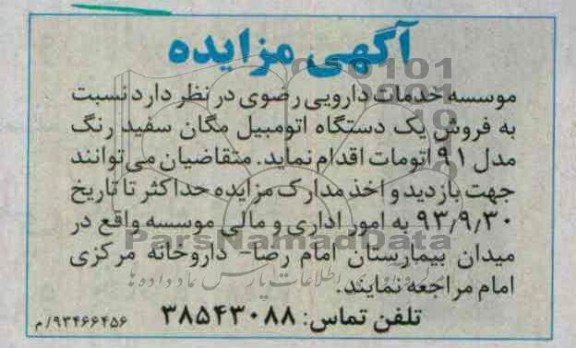 آگهی مزایده
موسسه خدمات دارویی رضوی در نظر دارد نسبت
به فروش یک دستگاه اتومبیل مگان سفید رنگ
مدل ۹۱ اتومات اقدام نماید. متقاضیان می‌توانند
جهت بازدید و اخذ مدارک مزایده حداکثر تا تاریخ
۹۳/۹/۳۰ به امور اداری و مالی موسسه واقع در
میدان بیمارستان امام رضا- داروخانه مرکزی
امام مراجعه نمایند.
تلفن تماس: ۳۸۵۴۳۰۸۸
۹۳۴۶۶۴۵۶/م
ParsNamadData